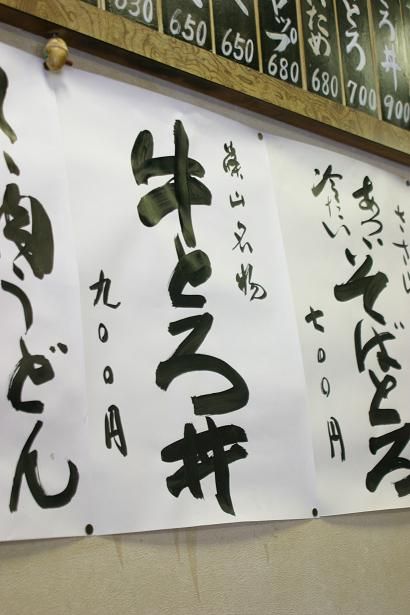 ろ丼 900
とろ 700
ため 680
ップ 680
650
650
630
あつい
冷たい
そばとろ
七〇〇円
篠山名物
牛とろ丼
九〇〇円
肉うどん